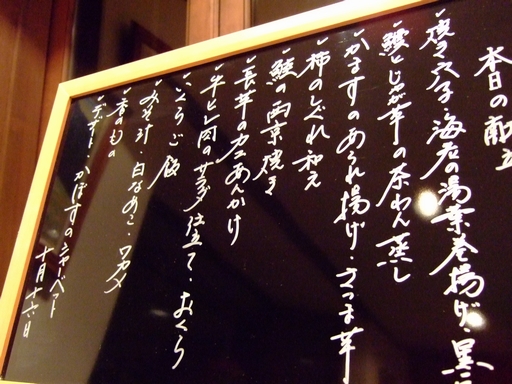 本日の献立
✓焼き穴子・海老の湯葉巻揚げ・黒
✓鰻とじゃが芋の茶わん蒸し
✓かますのあられ揚げ・さつま芋
✓柿のしぐれ和え
✓鮭の西京焼き
✓長芋のカニあんかけ
✓牛ヒレ肉のサラダ仕立て・おくら
✓いくらご飯
✓みそ汁・白なめこ・ワカメ
✓香のもの
✓デザート・かぼすのシャーベット
十月十六日